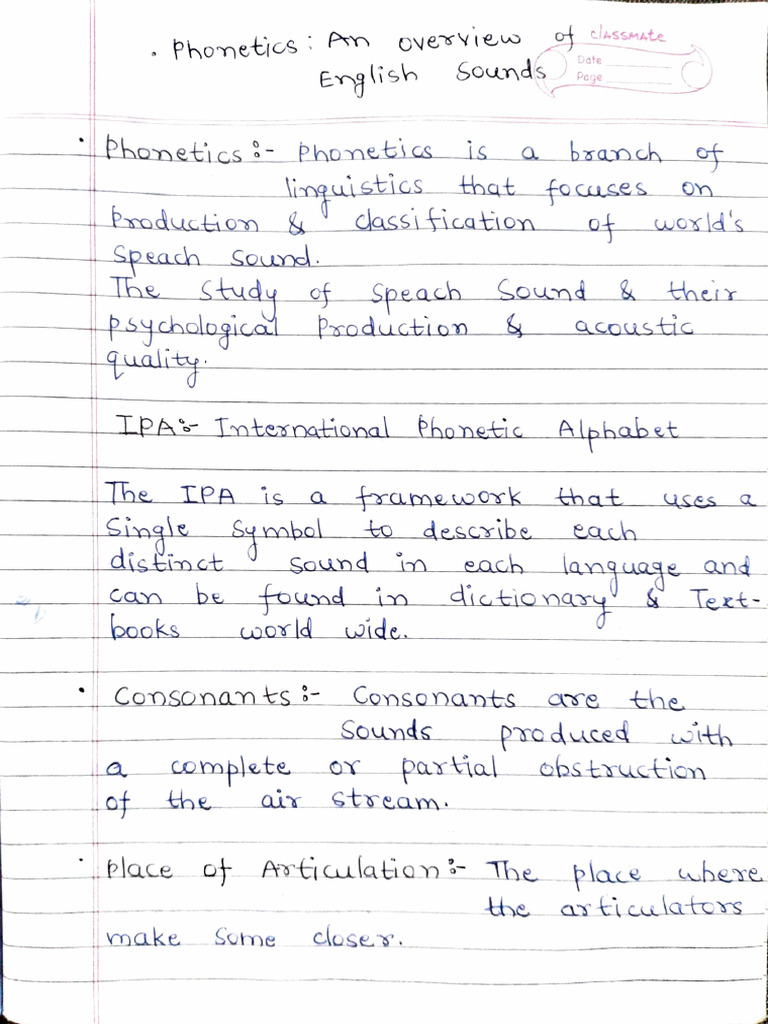 . Phonetics: An overview of
English Sounds
classmate
Date
Page
• Phonetics:- Phonetics is a branch of
linguistics that focuses on
Production & classification of world's
Speach sound.
The Study of Speach Sound & their
psychological Production & acoustic
quality.
IPA:- International Phonetic Alphabet
The IPA is a framework that uses a
Single Symbol to describe each
distinct sound in each language and
can be found in dictionary & Text-
books world wide.
• Consonants:- Consonants are the
Sounds produced with
a complete or partial obstruction
of the air stream.
• Place of Articulation:- The place where
the articulators
make some closer.